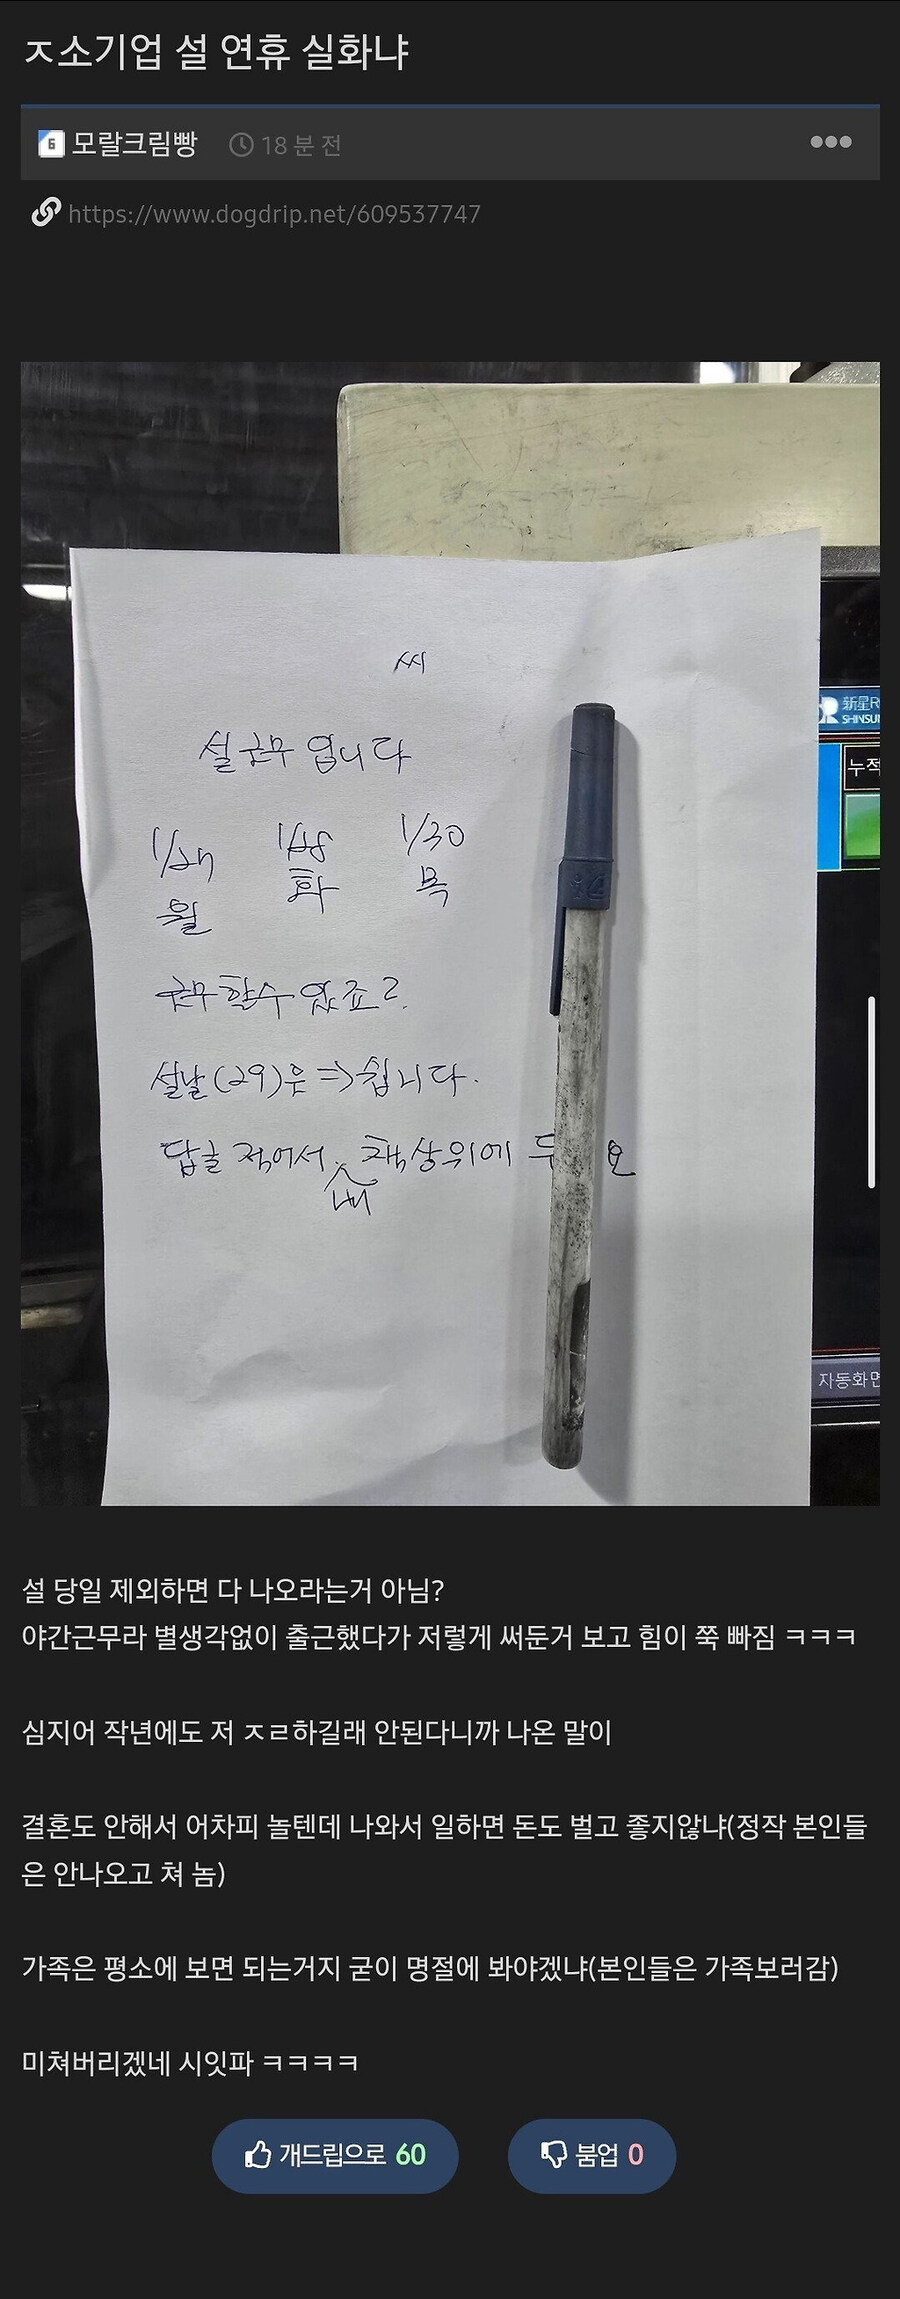 ㅈ소기업 설 연휴 실화냐
6 모랄크림빵 18 분 전
https://www.dogdrip.net/609537747
씨
설 근무 입니다
1/27 1/28 1/30
월 화 목
근무 할수 있죠?
설날(29)은 => 쉽니다.
답글 적어서 내 책상위에
新星R
SHINSUN
누적
자동화면
설 당일 제외하면 다 나오라는거 아님?
야간근무라 별생각없이 출근했다가 저렇게 써둔거 보고 힘이 쭉 빠짐 ㅋㅋㅋ
심지어 작년에도 저 ㅈㄹ하길래 안된다니까 나온 말이
결혼도 안해서 어차피 놀텐데 나와서 일하면 돈도 벌고 좋지않냐(정작 본인들
은 안나오고 쳐 놈)
가족은 평소에 보면 되는거지 굳이 명절에 봐야겠냐(본인들은 가족보러감)
미쳐버리겠네 시잇파 ㅋㅋㅋㅋ
개드립으로 60 붐업 0